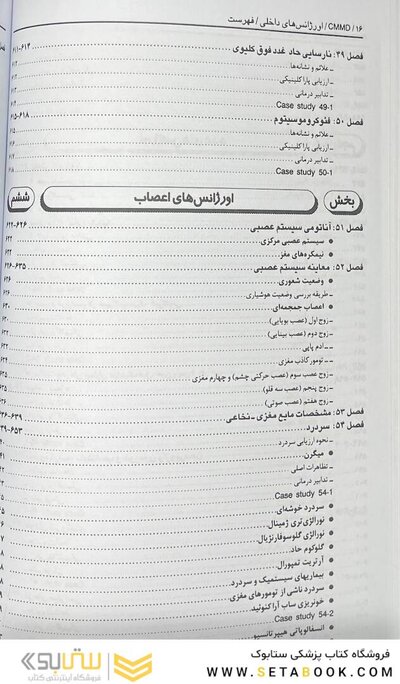 ۱۶ / CMMD / اورژانس‌های داخلی / فهرست
فصل ۴۹: نارسایی حاد غدد فوق کلیوی ۶۱۴-۶۱۱
علائم و نشانه‌ها
ارزیابی پارا کلینیکی
تدابیر درمانی
Case study 49-1
فصل ۵۰: فئوکروموسیتوم ۶۱۸-۶۱۵
علائم و نشانه‌ها ۶۱۵
ارزیابی پاراکلینیکی
تدابیر درمانی
Case study 50-1
بخش اورژانس‌های اعصاب ششم
فصل ۵۱: آناتومی سیستم عصبی ۶۲۶-۶۲۲
• سیستم عصبی مرکزی ۶۲۲
• نیمکره‌های مغز ۶۲۲
فصل ۵۲: معاینه سیستم عصبی ۶۳۵-۶۲۶
• وضعیت شعوری ۶۲۶
طریقه بررسی وضعیت هوشیاری ۶۲۶
• اعصاب جمجمه‌ای ۶۳۰
زوج اول (عصب بویایی) ۶۳۰
زوج دوم (عصب بینایی)
ادم پاپی
تومور کاذب مغزی
زوج عصب سوم (عصب حرکتی چشم) و چهارم مغزی
زوج پنجم (عصب سه قلو)
زوج هفتم (عصب صوتی)
فصل ۵۳: مشخصات مایع مغزی - نخاعی
فصل ۵۴: سردرد
نحوه ارزیابی سردرد
• میگرن
تظاهرات اصلی
تدابیر درمانی
Case study 54-1
• سردرد خوشه‌ای
• نورالژی تری ژمینال
• نورالژی گلوسوفارنژیال
• گلوکوم حاد
• آرتریت تمپورال
• بیماریهای سیستمیک و سردرد
• سردرد ناشی از تومورهای مغزی
• خونریزی ساب آراکنوئید
Case study 54-2
• انسفالوپاتی هیپرتانسیو
فروشگاه کتاب پزشکی ستابوک
WWW.SETABOOK.COM
ستابوک
فروشگاه اینترنتی کتاب